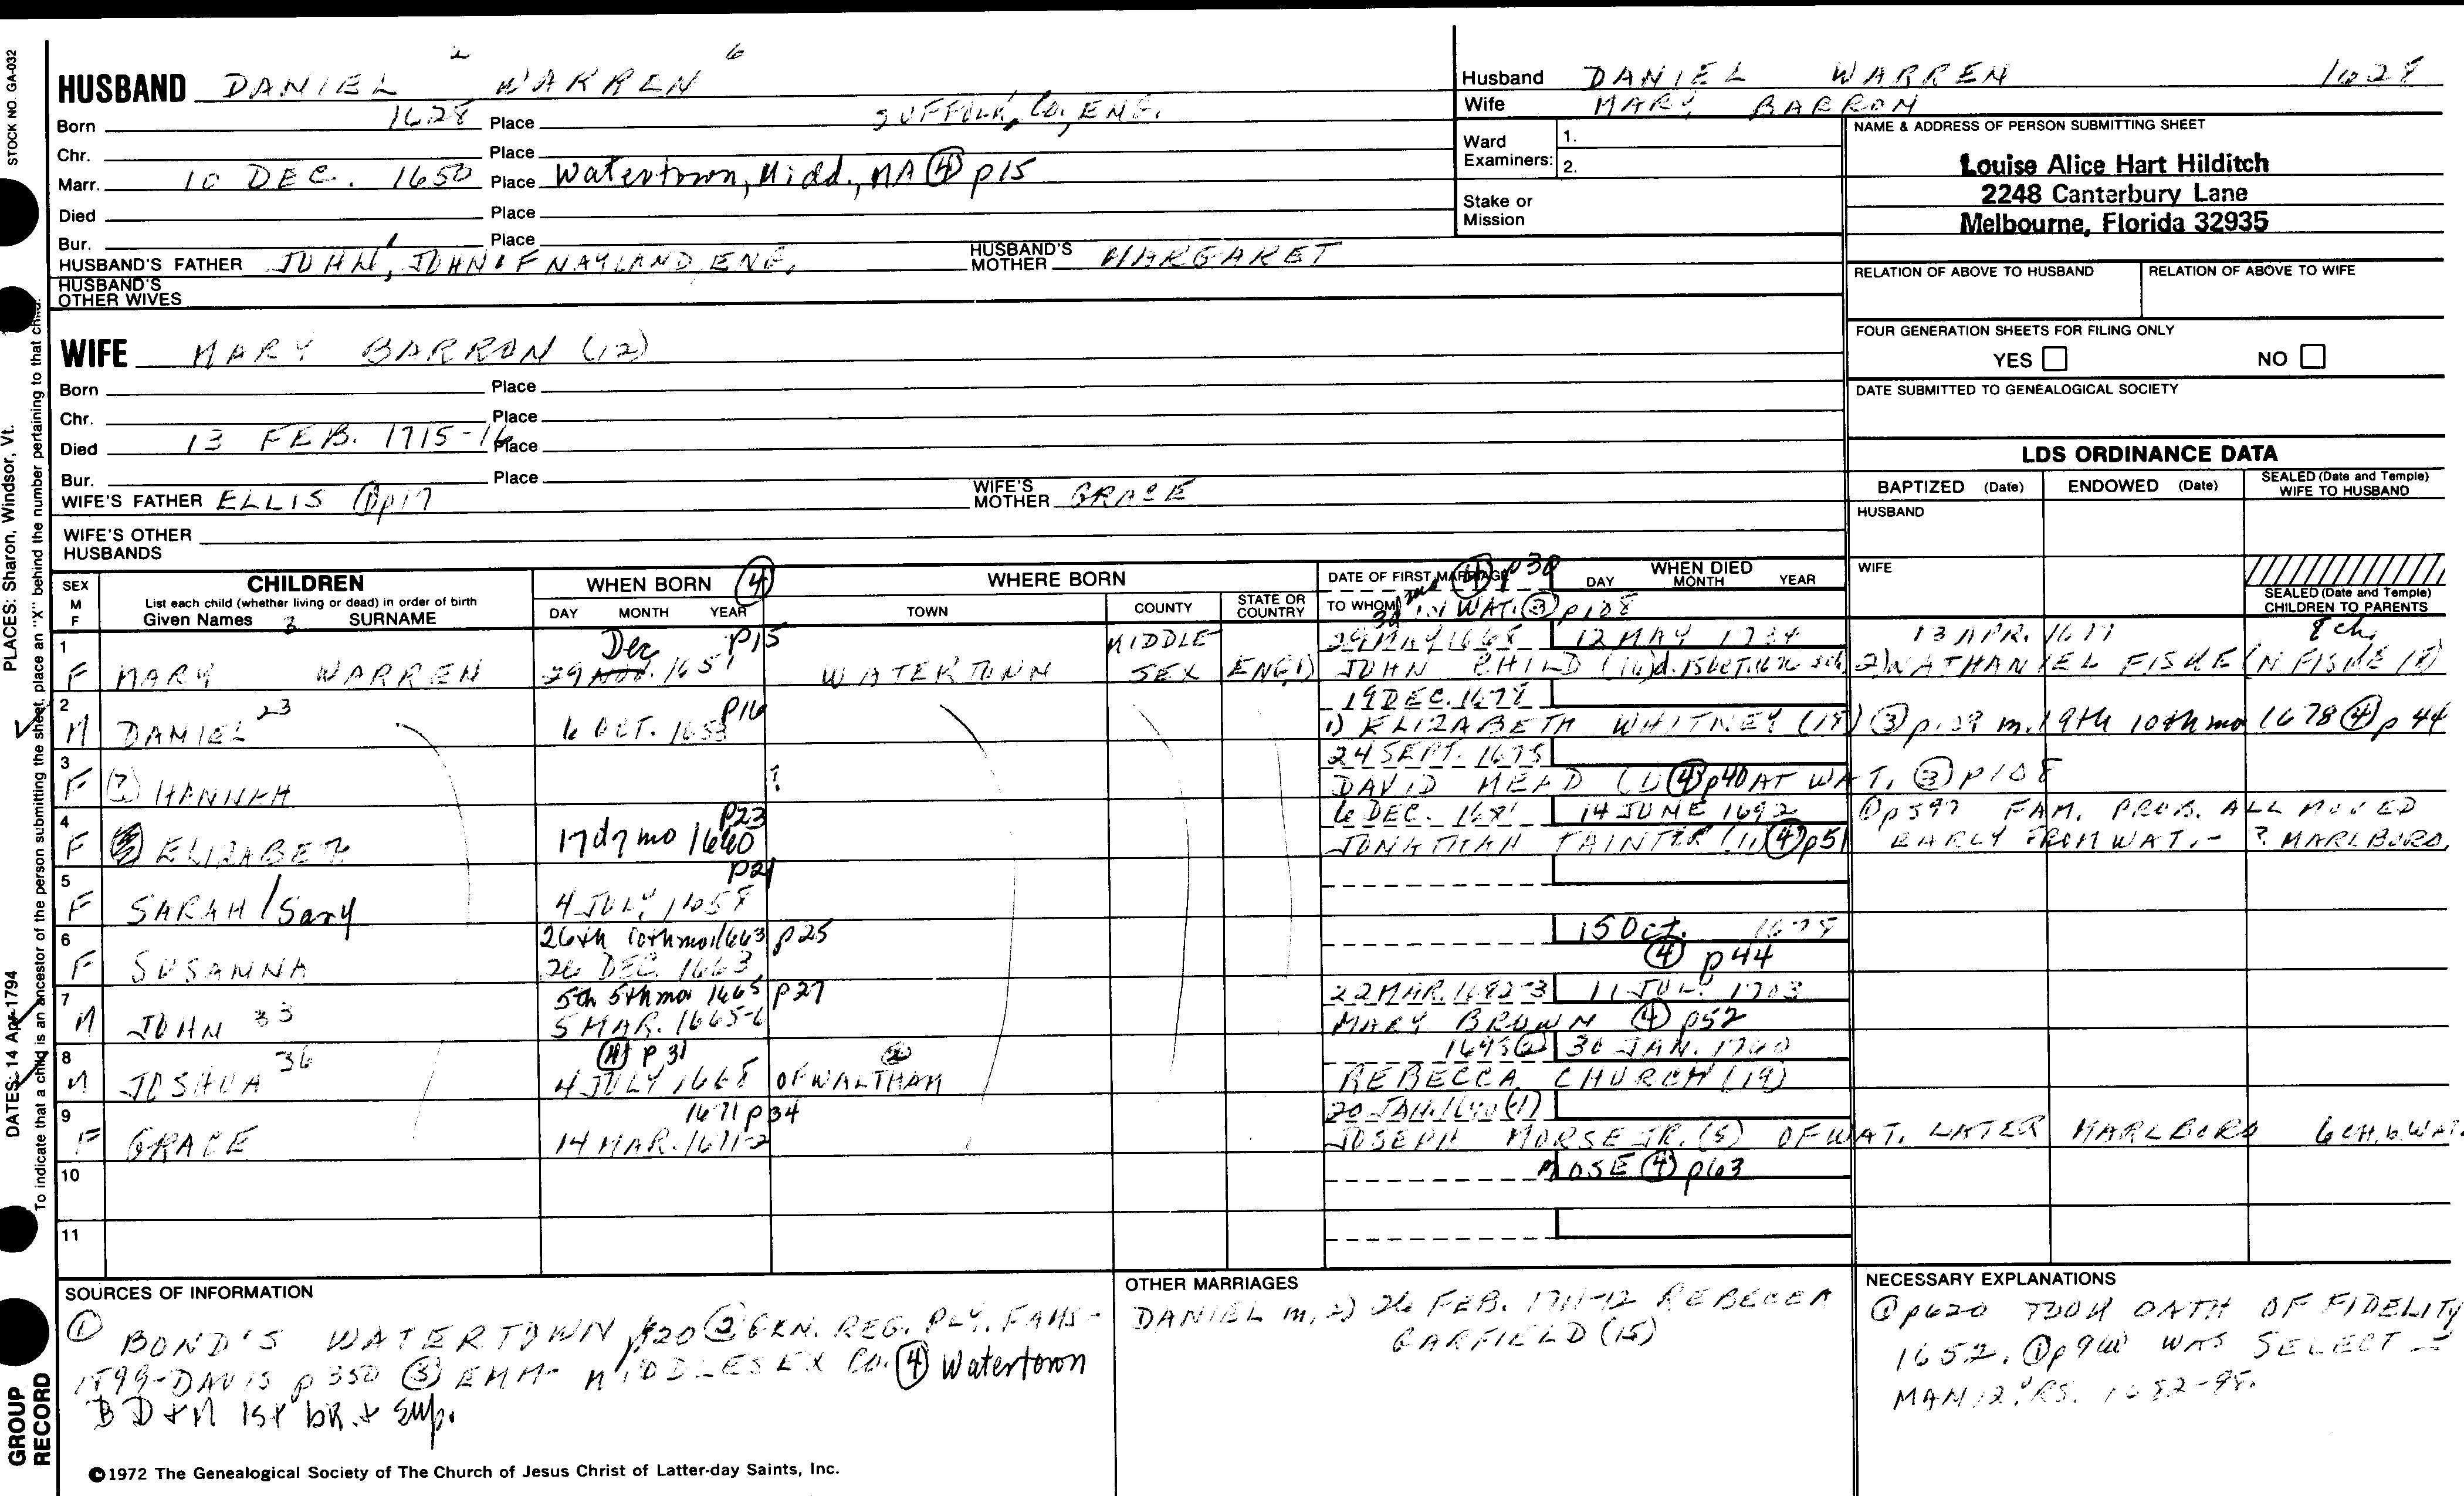 STOCK NO. GA-032
PLACES: Sharon, Windsor, Vt.
DATES: 14 Apr 1794
To indicate that a child is an ancestor of the person submitting the sheet, place an "X" behind the number pertaining to that child.
GROUP RECORD
HUSBAND DANIEL 2 WARREN 6
Born 1628 Place SUFFOLK, CO., ENG.
Chr. Place
Marr. 10 DEC. 1650 Place Watertown, Midd., MA (4) p15
Died Place
Bur. Place
HUSBAND'S FATHER JOHN 1, JOHN OF NAYLAND, ENG. HUSBAND'S MOTHER MARGARET
HUSBAND'S OTHER WIVES
WIFE MARY BARRON (12)
Born Place
Chr. Place
Died 13 FEB. 1715-16 Place
Bur. Place
WIFE'S FATHER ELLIS (1) p17 WIFE'S MOTHER GRACE
WIFE'S OTHER HUSBANDS
Husband DANIEL WARREN 1628
Wife MARY BARRON
Ward Examiners: 1. 2.
Stake or Mission
NAME & ADDRESS OF PERSON SUBMITTING SHEET
Louise Alice Hart Hilditch
2248 Canterbury Lane
Melbourne, Florida 32935
RELATION OF ABOVE TO HUSBAND RELATION OF ABOVE TO WIFE
FOUR GENERATION SHEETS FOR FILING ONLY
YES NO
DATE SUBMITTED TO GENEALOGICAL SOCIETY
LDS ORDINANCE DATA
BAPTIZED (Date) ENDOWED (Date) SEALED (Date and Temple) WIFE TO HUSBAND
HUSBAND
WIFE
SEALED (Date and Temple) CHILDREN TO PARENTS
SEX M F
CHILDREN
List each child (whether living or dead) in order of birth
Given Names 3 SURNAME
WHEN BORN (4)
DAY MONTH YEAR
WHERE BORN
TOWN COUNTY STATE OR COUNTRY
DATE OF FIRST MARRIAGE (4) p30
TO WHOM IN WAT. (3) p108
WHEN DIED
DAY MONTH YEAR
1 Dec p15 MIDDLE- 29 MAY 1668 12 MAY 1734 13 APR. 1677 8 ch.
F MARY WARREN 29 NOV. 1651 WATERTOWN SEX ENG 1) JOHN CHILD (16) d. 15 OCT. 1676 2) NATHANIEL FISKE (N FISKE 18)
2 p16 19 DEC. 1678
M DANIEL 23 6 OCT. 1653 1) ELIZABETH WHITNEY (18) (3) p.29 m. 19th 10th mo 1678 (4) p 44
3 24 SEPT. 1675
F (?) HANNAH ? DAVID MEAD (1) (4) p40 AT WAT. (3) p108
4 p23 6 DEC. 1681 14 JUNE 1692 (1) p597 FAM. PROB. ALL MOVED
F ELIZABETH 17 d 7 mo 1660 JONATHAN TAINTER (11) (4) p51 EARLY FROM WAT. - ? MARLBORO.
5 p21
F SARAH / Sary 4 JULY 1658
6 26th 10th mo 1663 p25 15 Oct. 1678
F SUSANNA 26 DEC. 1663 (4) p44
7 5th 5th mo 1665 p27 22 MAR. 1682-3 11 JULY 1703
M JOHN 33 5 MAR. 1665-6 MARY BROWN (4) p52
8 (4) p 31 1695 (2) 30 JAN. 1760
M JOSHUA 36 4 JULY 1668 OF WALTHAM REBECCA CHURCH (19)
9 1671 p34 20 JAN. 1690 (-1)
F GRACE 14 MAR. 1671-2 JOSEPH MORSE JR. (5) OF WAT. LATER MARLBORO 6 CH. b. WAT.
10 MOSE (4) p63
11
SOURCES OF INFORMATION
(1) BOND'S WATERTOWN p620 (2) GEN. REG. PLY. FAMS-
1899-DAVIS p 350 (3) EMM- MIDDLESEX CO. (4) Watertown
B D + M 1st bk. + sup.
OTHER MARRIAGES
DANIEL m. 2) 26 FEB. 1711-12 REBECCA
GARFIELD (15)
NECESSARY EXPLANATIONS
(1) p620 TOOK OATH OF FIDELITY
1652. (1) p960 WAS SELECT-
MAN 12 YRS. 1682-98.
©1972 The Genealogical Society of The Church of Jesus Christ of Latter-day Saints, Inc.